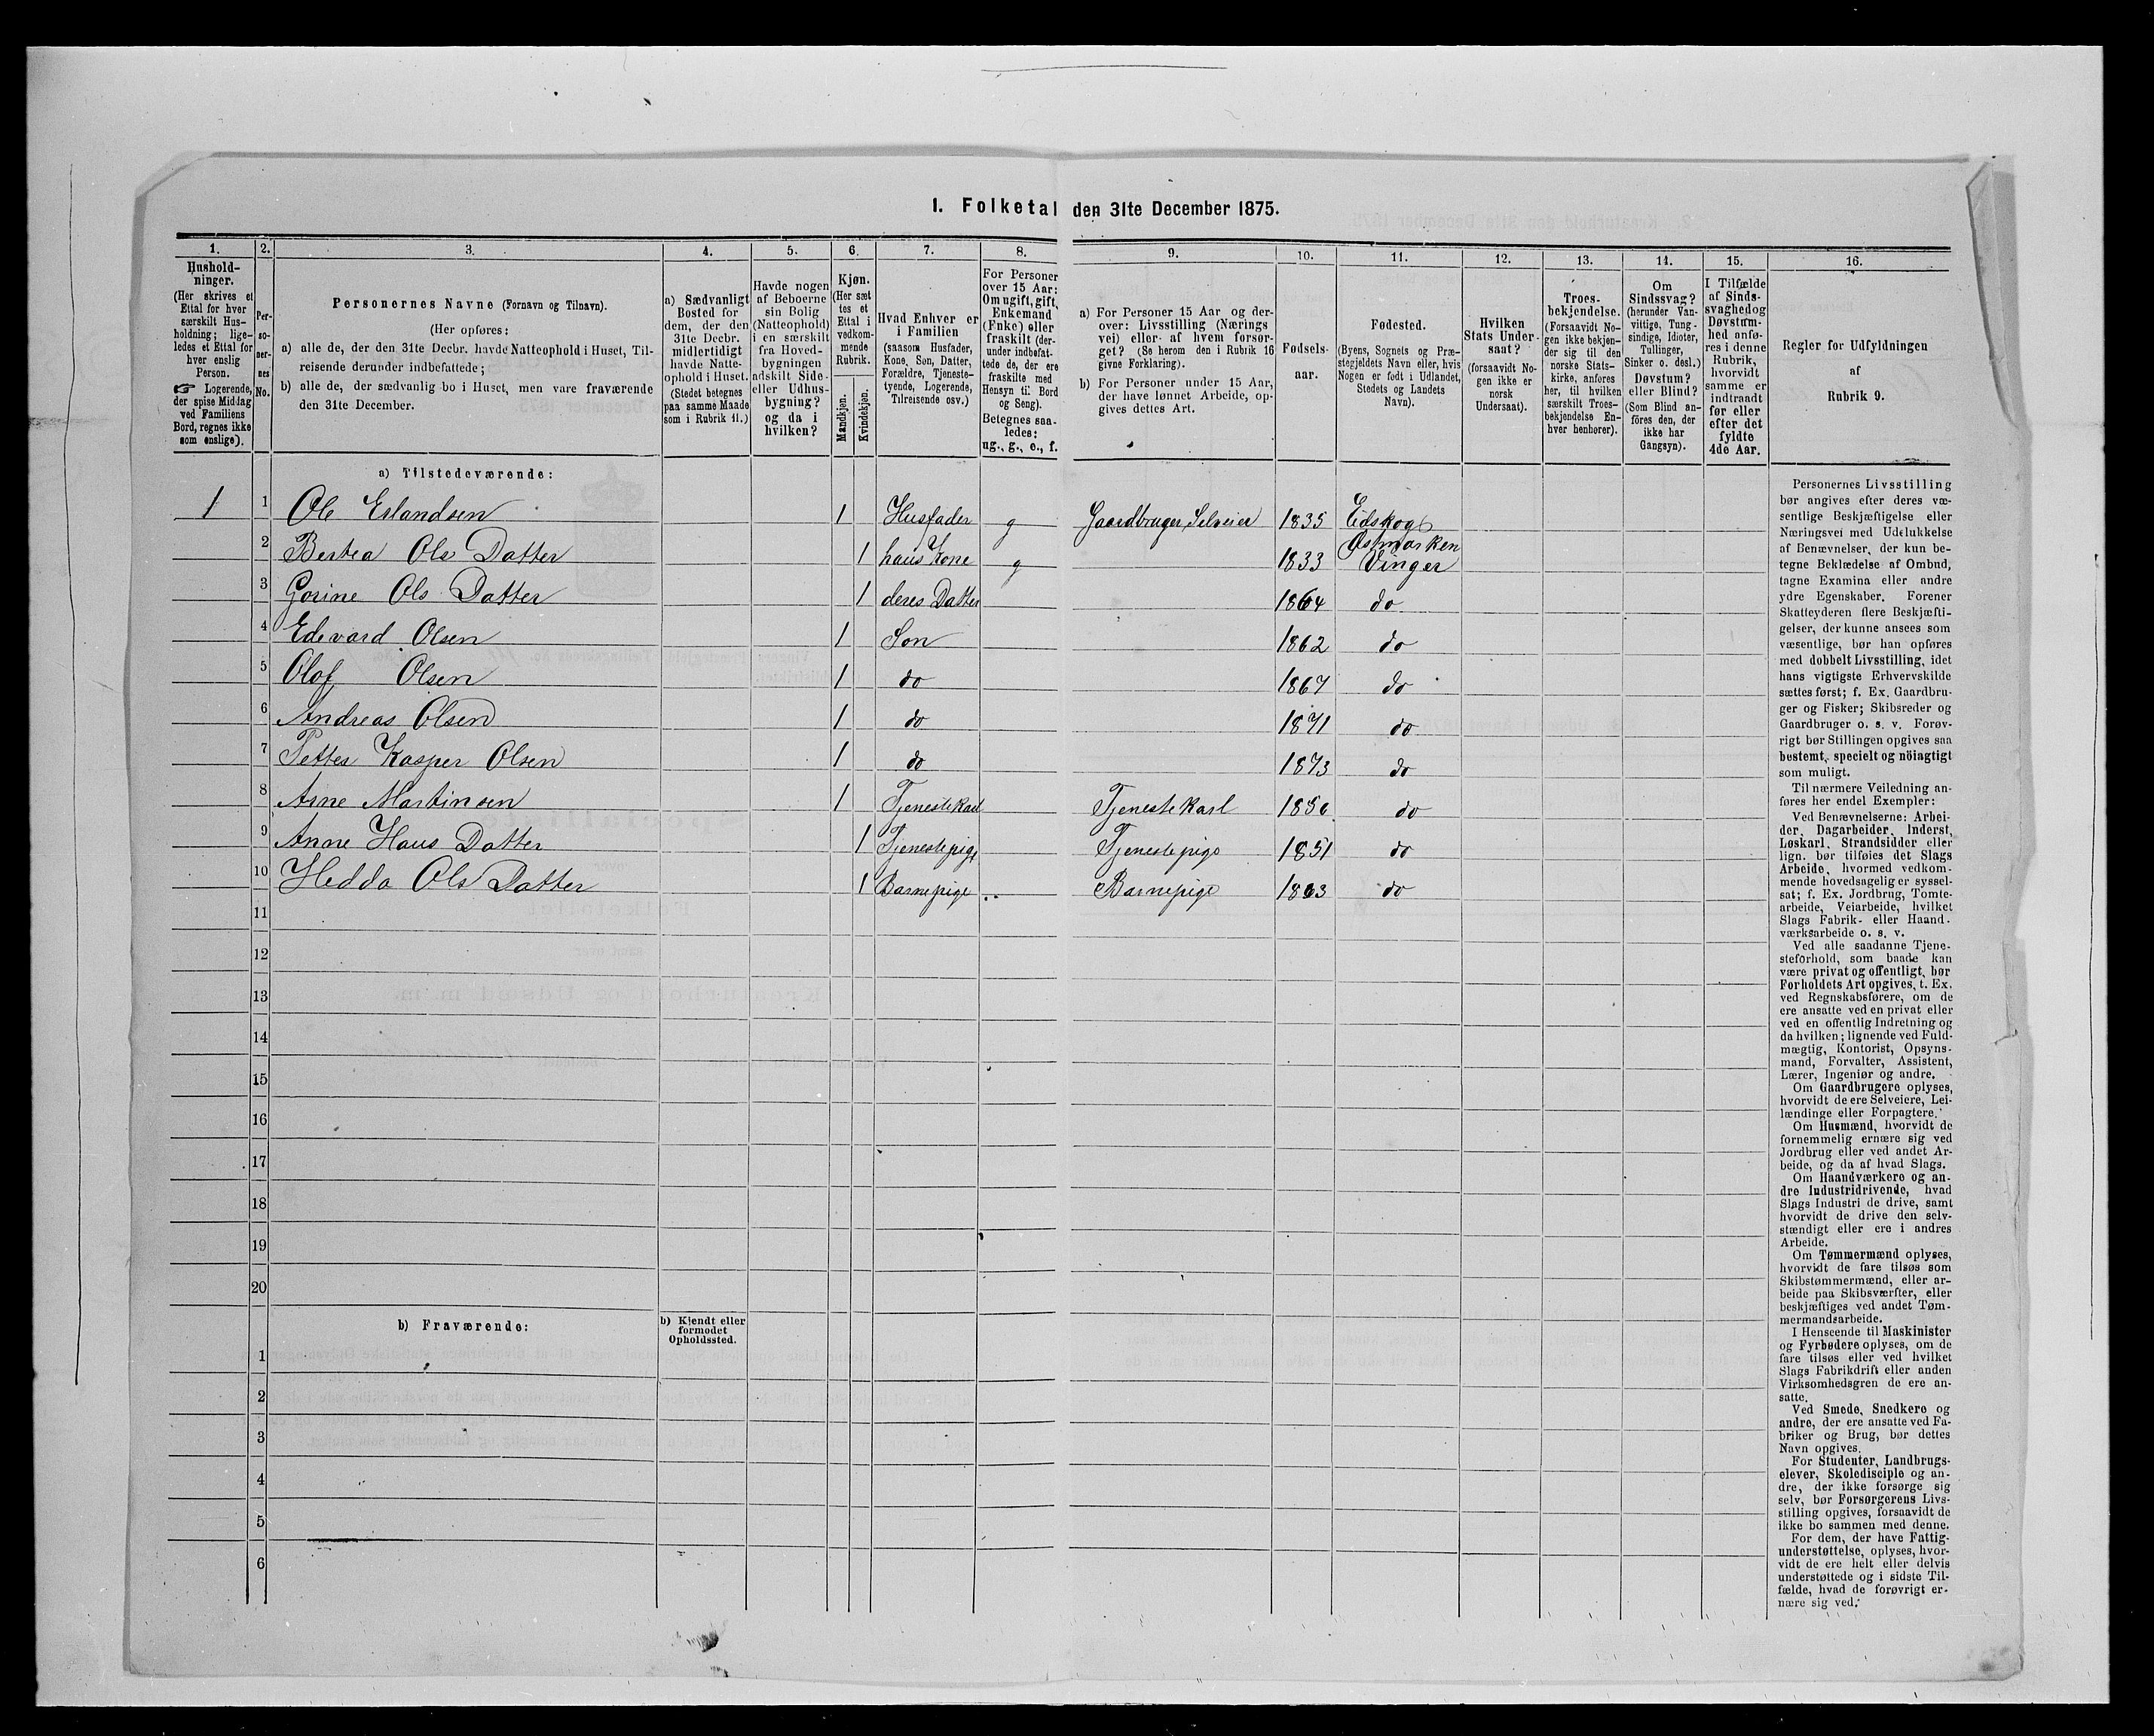 I. Folketal den 31te December 1875.
1. 2. 3. 4. 5. 6. 7. 8. 9. 10. 11. 12. 13. 14. 15. 16.
Hushold-
ninger.
(Her skrives et
Ettal for hver
særskilt Hus-
holdning; lige-
ledes et Ettal for
hver enslig
Person.
☞ Logerende,
der spise Middag
ved Familiens
Bord, regnes ikke
som enslige).
Per-
so-
ner-
nes
No.
Personernes Navne (Fornavn og Tilnavn).
(Her opføres:
a) alle de, der den 31te Decbr. havde Natteophold i Huset, Til-
reisende derunder indbefattede;
b) alle de, der sædvanlig bo i Huset, men vare fraværende
den 31te December.
a) Sædvanligt
Bosted for
dem, der den
31te Decbr.
midlertidigt
havde Natte-
ophold i Huset.
(Stedet betegnes
paa samme Maade
som i Rubrik 11.)
Havde nogen
af Beboerne
sin Bolig
(Natteophold)
i en særskilt
fra Hoved-
bygningen
adskilt Side-
eller Udhus-
bygning?
og da i
hvilken?
Kjøn.
(Her sæt
tes et
Ettal i
vedkom-
mende
Rubrik.
Mandkjøn.
Kvindekjøn.
Hvad Enhver er
i Familien
(saasom Husfader,
Kone, Søn, Datter,
Forældre, Tjeneste-
tyende, Logerende,
Tilreisende osv.)
For Personer
over 15 Aar:
Om ugift, gift,
Enkemand
(Enke) eller
fraskilt (der-
under indbefat-
tede de, der ere
fraskilte med
Hensyn til Bord
og Seng).
Betegnes saa-
ledes:
ug., g., e., f.
a) For Personer 15 Aar og der-
over: Livsstilling (Nærings
vei) eller af hvem forsør-
get? (Se herom den i Rubrik 16
givne Forklaring).
b) For Personer under 15 Aar,
der have lønnet Arbeide, op-
gives dettes Art.
Fødsels-
aar.
Fødested.
(Byens, Sognets og Præ-
stegjeldets Navn eller, hvis
Nogen er født i Udlandet,
Stedets og Landets
Navn).
Hvilken
Stats Under-
saat?
(forsaavidt No-
gen ikke er
norsk
Undersaat).
Troes-
bekjendelse.
(Forsaavidt No-
gen ikke bekjen-
der sig til den
norske Stats-
kirke, anføres
her, til hvilken
særskilt Troes-
bekjendelse En-
hver henhører).
Om
Sindssvag?
(herunder Van-
vittige, Tung-
sindige, Idioter,
Tullinger,
Sinker o. desl.)
Døvstum?
eller Blind?
(Som Blind an-
føres den, der
ikke har
Gangsyn).
I Tilfælde
af Sinds-
svaghed og
Døvstum-
hed anfø-
res i denne
Rubrik,
hvorvidt
samme er
indtraadt
før eller
efter det
fyldte
4de Aar.
Regler for Udfyldningen
af
Rubrik 9.
a) Tilstedeværende:
1 1 Ole Erlandsen 1 Husfader g Gaardbruger, Selveier 1835 Eidskog
2 Bertea Ols Datter 1 hans Kone g 1833 Østmarken Vinger
3 Gorine Ols Datter 1 deres Datter 1864 do
4 Edevard Olsen 1 Son 1862 do
5 Olof Olsen 1 do 1867 do
6 Andreas Olsen 1 do 1871 do
7 Petter Kasper Olsen 1 do 1873 do
8 Arne Martinsen 1 Tjenestekarl Tjenestekarl 1856 do
9 Anne Hans Datter 1 Tjenestepige Tjenestepige 1851 do
10 Hedda Ols Datter 1 Barnepige Barnepige 1863 do
11
12
13
14
15
16
17
18
19
20
b) Fraværende:
b) Kjendt eller
formodet
Opholdssted.
1
2
3
4
5
6
Personernes Livsstilling
bør angives efter deres væ-
sentlige Beskjæftigelse eller
Næringsvei med Udelukkelse
af Benævnelser, der kun be-
tegne Beklædelse af Ombud,
tagne Examina eller andre
ydre Egenskaber. Forener
Skatteyderen flere Beskjæfti-
gelser, der kunne ansees som
væsentlige, bør han opføres
med dobbelt Livsstilling, idet
hans vigtigste Erhvervskilde
sættes først; f. Ex. Gaardbru-
ger og Fisker; Skibsreder og
Gaardbruger o. s. v. Forøv-
rigt bør Stillingen opgives saa
bestemt, specielt og nöiagtigt
som muligt.
Til nærmere Veiledning an-
føres her endel Exempler:
Ved Benævnelserne: Arbei-
der, Dagarbeider, Inderst,
Løskarl, Strandsidder eller
lign. bør tilføies det Slags
Arbeide, hvormed vedkom-
mende hovedsagelig er syssel-
sat; f. Ex. Jordbrug, Tomte-
arbeide, Veiarbeide, hvilket
Slags Fabrik- eller Haand-
værksarbeide o. s. v.
Ved alle saadanne Tjene-
steforhold, som baade kan
være privat og offentligt, bør
Forholdets Art opgives, t. Ex.
ved Regnskabsførere, om de
ere ansatte ved en privat eller
ved en offentlig Indretning og
da hvilken; lignende ved Fuld-
mægtig, Kontorist, Opsyns-
mand, Forvalter, Assistent,
Lærer, Ingeniør og andre.
Om Gaardbrugere oplyses,
hvorvidt de ere Selveiere, Lei-
lændinge eller Forpagtere.
Om Husmænd, hvorvidt de
fornemmelig ernære sig ved
Jordbrug eller ved andet Ar-
beide, og da af hvad Slags.
Om Haandværkere og an-
dre Industridrivende, hvad
Slags Industri de drive, samt
hvorvidt de drive den selv-
stændigt eller ere i andres
Arbeide.
Om Tømmermænd oplyses,
hvorvidt de fare tilsøs som
Skibstømmermænd, eller ar-
beide paa Skibsværfter, eller
beskjæftiges ved andet Tøm-
mermandsarbeide.
I Henseende til Maskinister
og Fyrbødere oplyses, om de
fare tilsøs eller ved hvilket
Slags Fabrikdrift eller anden
Virksomhedsgren de ere an-
satte.
Ved Smede, Snedkere og
andre, der ere ansatte ved Fa-
briker og Brug, bør dettes
Navn opgives.
For Studenter, Landbrugs-
elever, Skoledisciple og an-
dre, der ikke forsørge sig
selv, bør Forsørgerens Livs-
stilling opgives, forsaavidt de
ikke bo sammen med denne.
For dem, der have Fattig-
understøttelse, oplyses, hvor-
vidt de ere helt eller delvis
understøttede og i sidste Til-
fælde, hvad de forøvrigt er-
nære sig ved.